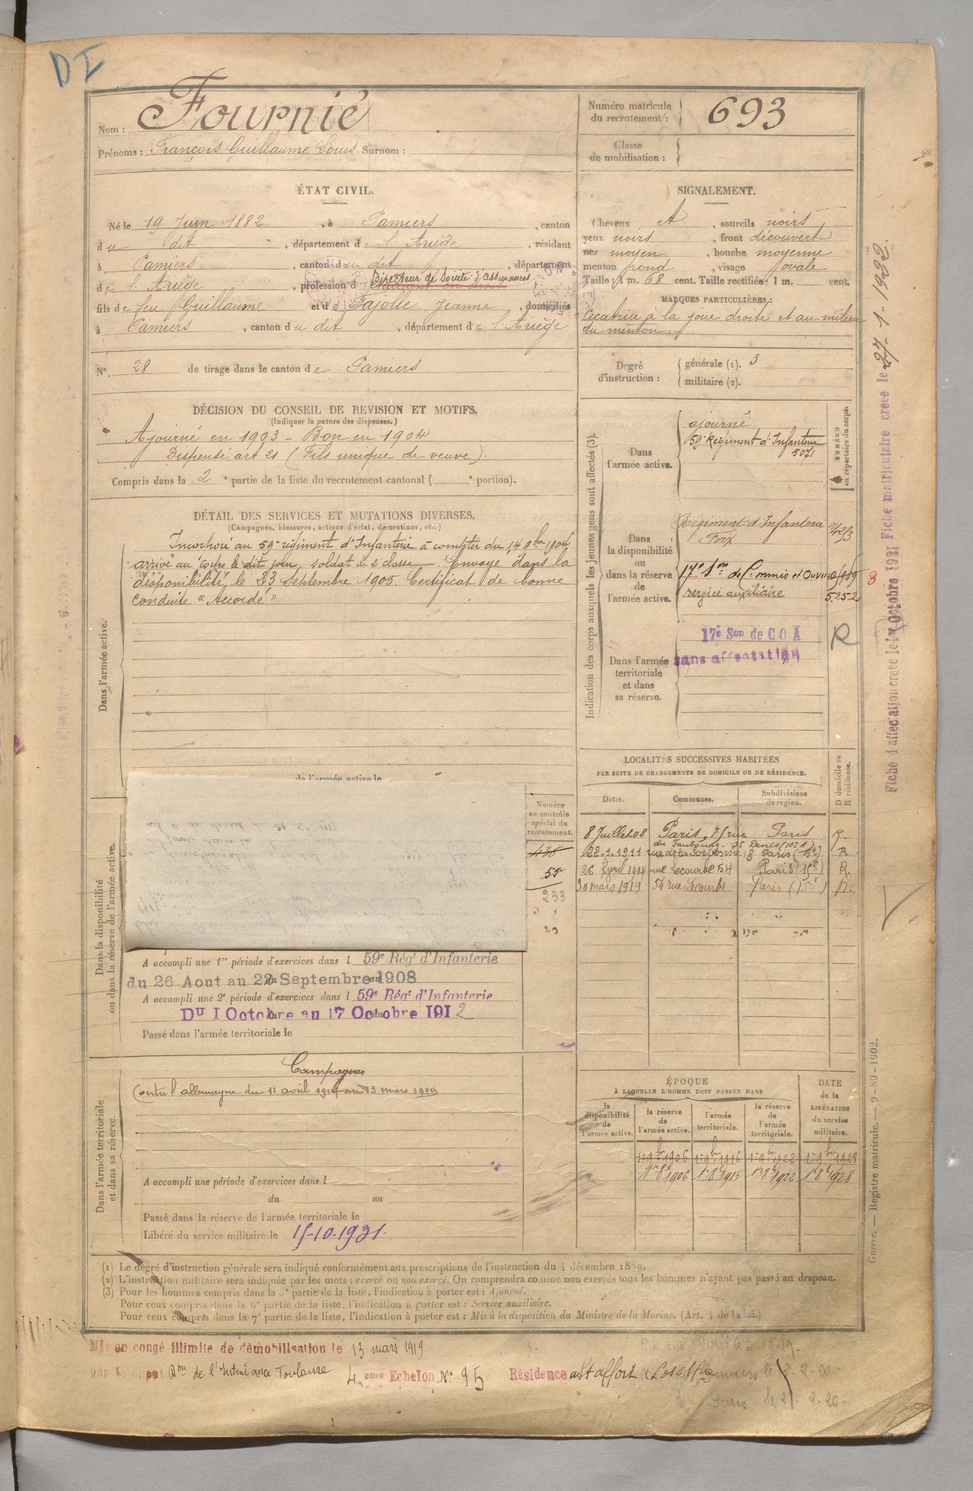 DI
Nom : Fournié
Prénoms : François Guillaume Louis Surnom :
Numéro matricule du recrutement : 693
Classe de mobilisation :
ÉTAT CIVIL.
Né le 19 Juin 1882, à Pamiers, canton
du dit, département de l'Ariège, résidant
à Pamiers, canton du dit, département
de l'Ariège, profession d Directeur de Société d'assurances
fils de feu Guillaume et de Pajolie Jeanne, domiciliés
à Pamiers, canton du dit, département de l'Ariège
N° 28 de tirage dans le canton de Pamiers
SIGNALEMENT.
Cheveux et, sourcils noirs
yeux noirs, front découvert
nez moyen, bouche moyenne
menton rond, visage ovale
Taille : 1 m. 68 cent. Taille rectifiée : 1 m. cent.
MARQUES PARTICULIÈRES :
Cicatrice à la joue droite et au milieu
du menton
Degré d'instruction : générale (1). 3
militaire (2).
DÉCISION DU CONSEIL DE REVISION ET MOTIFS.
(Indiquer la nature des dispenses.)
Ajourné en 1903 - Bon en 1904
Dispensé art 21 (Fils unique de veuve).
Compris dans la 2e partie de la liste du recrutement cantonal ( e portion).
DÉTAIL DES SERVICES ET MUTATIONS DIVERSES.
(Campagnes, blessures, actions d'éclat, décorations, etc.)
Incorporé au 59e régiment d'Infanterie à compter du 14 9bre 1904
arrivé au corps le dit jour, soldat de 2e classe. Envoyé dans la
disponibilité le 23 Septembre 1905 Certificat de bonne
conduite "Accordé"
Dans l'armée active.
Indication des corps auxquels les jeunes gens sont affectés (3).
NUMÉRO au répertoire du corps.
Dans l'armée active.
ajourné
59e Régiment d'Infanterie
5071
Dans la disponibilité ou dans la réserve de l'armée active.
Régiment d'Infanterie
Foix
17e Son de Commis et Ouvriers
service auxiliaire
5252
3
Dans l'armée territoriale et dans sa réserve.
17e Son de C O A
sans affectation
R
LOCALITÉS SUCCESSIVES HABITÉES
PAR SUITE DE CHANGEMENTS DE DOMICILE OU DE RÉSIDENCE.
Dates. Communes. Subdivisions de région. D domicile ou R résidence.
8 Juillet 08 Paris, 75 rue Paris R.
du Faubourg St Denis (10e)
22.1.1911 8 Paris R
26 Avril 1914 rue Lecourbe 54 Paris (15e) R
30 mars 1919 54 rue Lecourbe Paris (15e) R.
de l'armée active le
Numéro au contrôle spécial du recrutement.
55
233
Dans la disponibilité ou dans la réserve de l'armée active.
A accompli une 1re période d'exercices dans l 59e Régt d'Infanterie
du 26 Aout au 22 Septembre 1908
A accompli une 2e période d'exercices dans l 59e Régt d'Infanterie
Du 1 Octobre au 17 Octobre 1912
Passé dans l'armée territoriale le
Campagnes
Contre l'allemagne du 11 avril 1915 au 13 mars 1919
Dans l'armée territoriale et dans sa réserve.
A accompli une période d'exercices dans l
du au
Passé dans la réserve de l'armée territoriale le
Libéré du service militaire le 15-10-1931
ÉPOQUE
À LAQUELLE L'HOMME DOIT PASSER DANS
DATE de la LIBÉRATION du service militaire.
la disponibilité de l'armée active. la réserve de l'armée active. l'armée territoriale. la réserve de l'armée territoriale.
1er 9bre 1906 1er 9bre 1916 1er 9bre 1922 1er 9bre 1928
1er 8bre 1906 1er 8bre 1916 1er 8bre 1922 1er 8bre 1928
(1) Le degré d'instruction générale sera indiqué conformément aux prescriptions de l'instruction du 4 décembre 1889.
(2) L'instruction militaire sera indiquée par les mots : exercé ou non exercé. On comprendra comme non exercés tous les hommes n'ayant pas passé au drapeau.
(3) Pour les hommes compris dans la 5e partie de la liste, l'indication à porter est : Ajourné.
Pour ceux compris dans la 6e partie de la liste, l'indication à porter est : Service auxiliaire.
Pour ceux compris dans la 7e partie de la liste, l'indication à porter est : Mis à la disposition du Ministre de la Marine. (Art. 4 de la loi.)
Mis en congé illimité de démobilisation le 13 mars 1919
par le dépôt Don de l'Intendance Toulouse 4eme Echelon N° 95 Résidence
Fiche d'affectation créée le Octobre 1931 Fiche matriculaire créée le 27-1-1922
Guerre. — Registre matricule. — 9-89-1902.